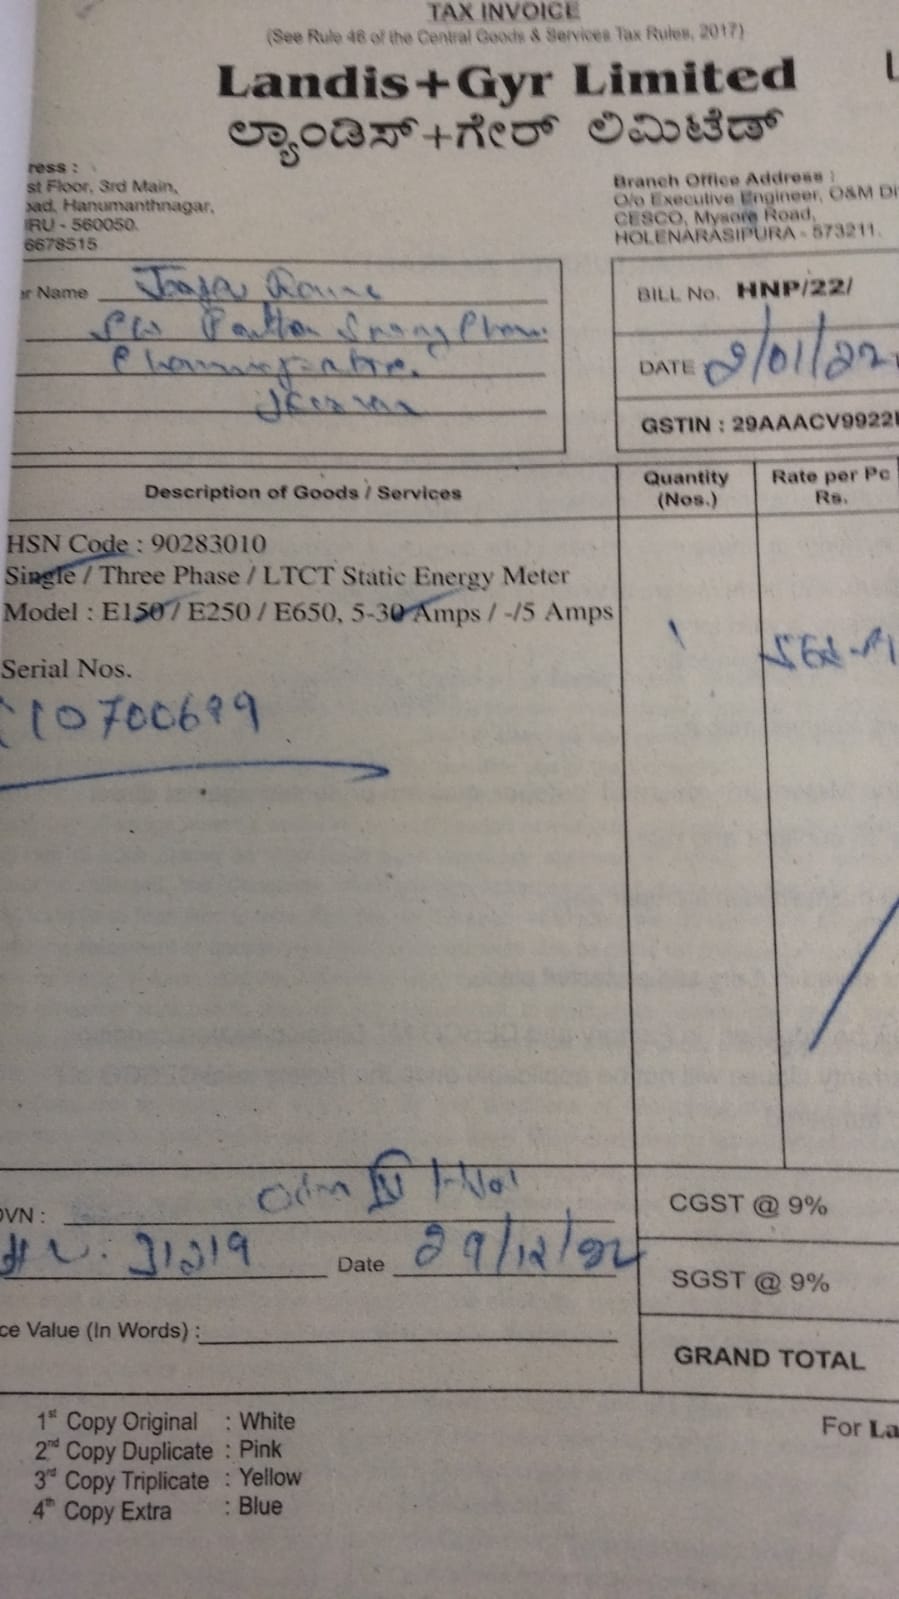 TAX INVOICE
(See Rule 46 of the Central Goods & Services Tax Rules, 2017)
Landis+Gyr Limited
ಲ್ಯಾಂಡಿಸ್+ಗೇರ್ ಲಿಮಿಟೆಡ್
ress :
st Floor, 3rd Main,
oad, Hanumanthnagar,
RU - 560050.
6678515
Branch Office Address :
O/o Executive Engineer, O&M Di
CESCO, Mysore Road,
HOLENARASIPURA - 573211.
er Name
BILL No. HNP/22/
DATE
GSTIN : 29AAACV9922
Description of Goods / Services
Quantity (Nos.)
Rate per Pc Rs.
HSN Code : 90283010
Single / Three Phase / LTCT Static Energy Meter
Model : E150 / E250 / E650, 5-30 Amps / -/5 Amps
1
Serial Nos.
10700699
OVN :
31219 Date 29/12/22
ce Value (In Words) :
CGST @ 9%
SGST @ 9%
GRAND TOTAL
1st Copy Original : White
2nd Copy Duplicate : Pink
3rd Copy Triplicate : Yellow
4th Copy Extra : Blue
For La